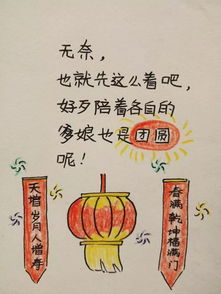 无奈，
也就先这么着吧，
好歹陪着各自的
爹娘也是团圆
呢！
天增岁月人增寿
春满乾坤福满门